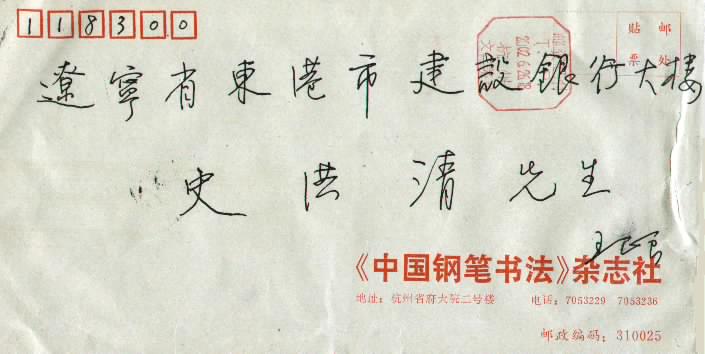 118300
贴 邮
票 处
2002.6.26.18
杭州
遼寧省東港市建設銀行大楼
史洪清先生
王正良
《中国钢笔书法》杂志社
地址：杭州省府大院二号楼 电话：7053229 7053236
邮政编码：310025